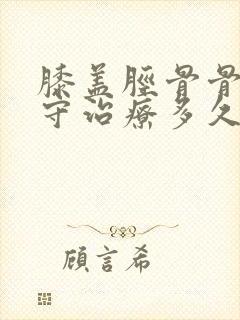 膝盖脛骨骨
守治療多久
顧言希